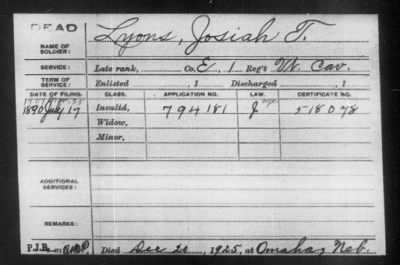 DEAD
NAME OF SOLDIER: Lyons, Josiah T.
SERVICE: Late rank, Co. E, 1 Reg't Vt. Cav.
TERM OF SERVICE: Enlisted , 1 Discharged , 1
DATE OF FILING. CLASS. APPLICATION NO. LAW. CERTIFICATE NO.
1890 July 17 Invalid, 794181 J 518078
Widow,
Minor,
ADDITIONAL SERVICES:
REMARKS:
P.J.B. Died Dec 20, 1925, at Omaha, Neb.